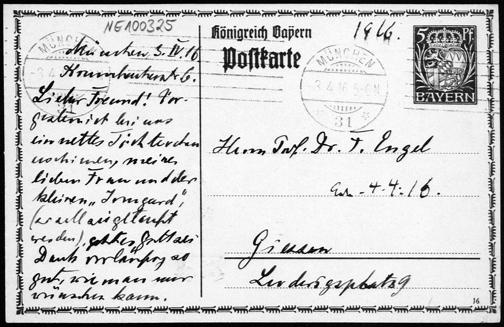 NE100325
München 3. IV. 16
Lieber Freund! Vor-
gestern ist bei uns
ein nettes Töchterchen
erschienen, meiner
lieben Frau und der
kleinen „Irmgard“,
(so soll sie getauft
werden), geht es Gott sei
Dank vorläufig so
gut, wie man nur
wünschen kann.
Königreich Bayern
Postkarte
1916.
MÜNCHEN
3.4.16. 5-6N
* 31 *
5 Pf
BAYERN
Herrn Prof. Dr. F. Engel
4.4.16.
Giessen
16